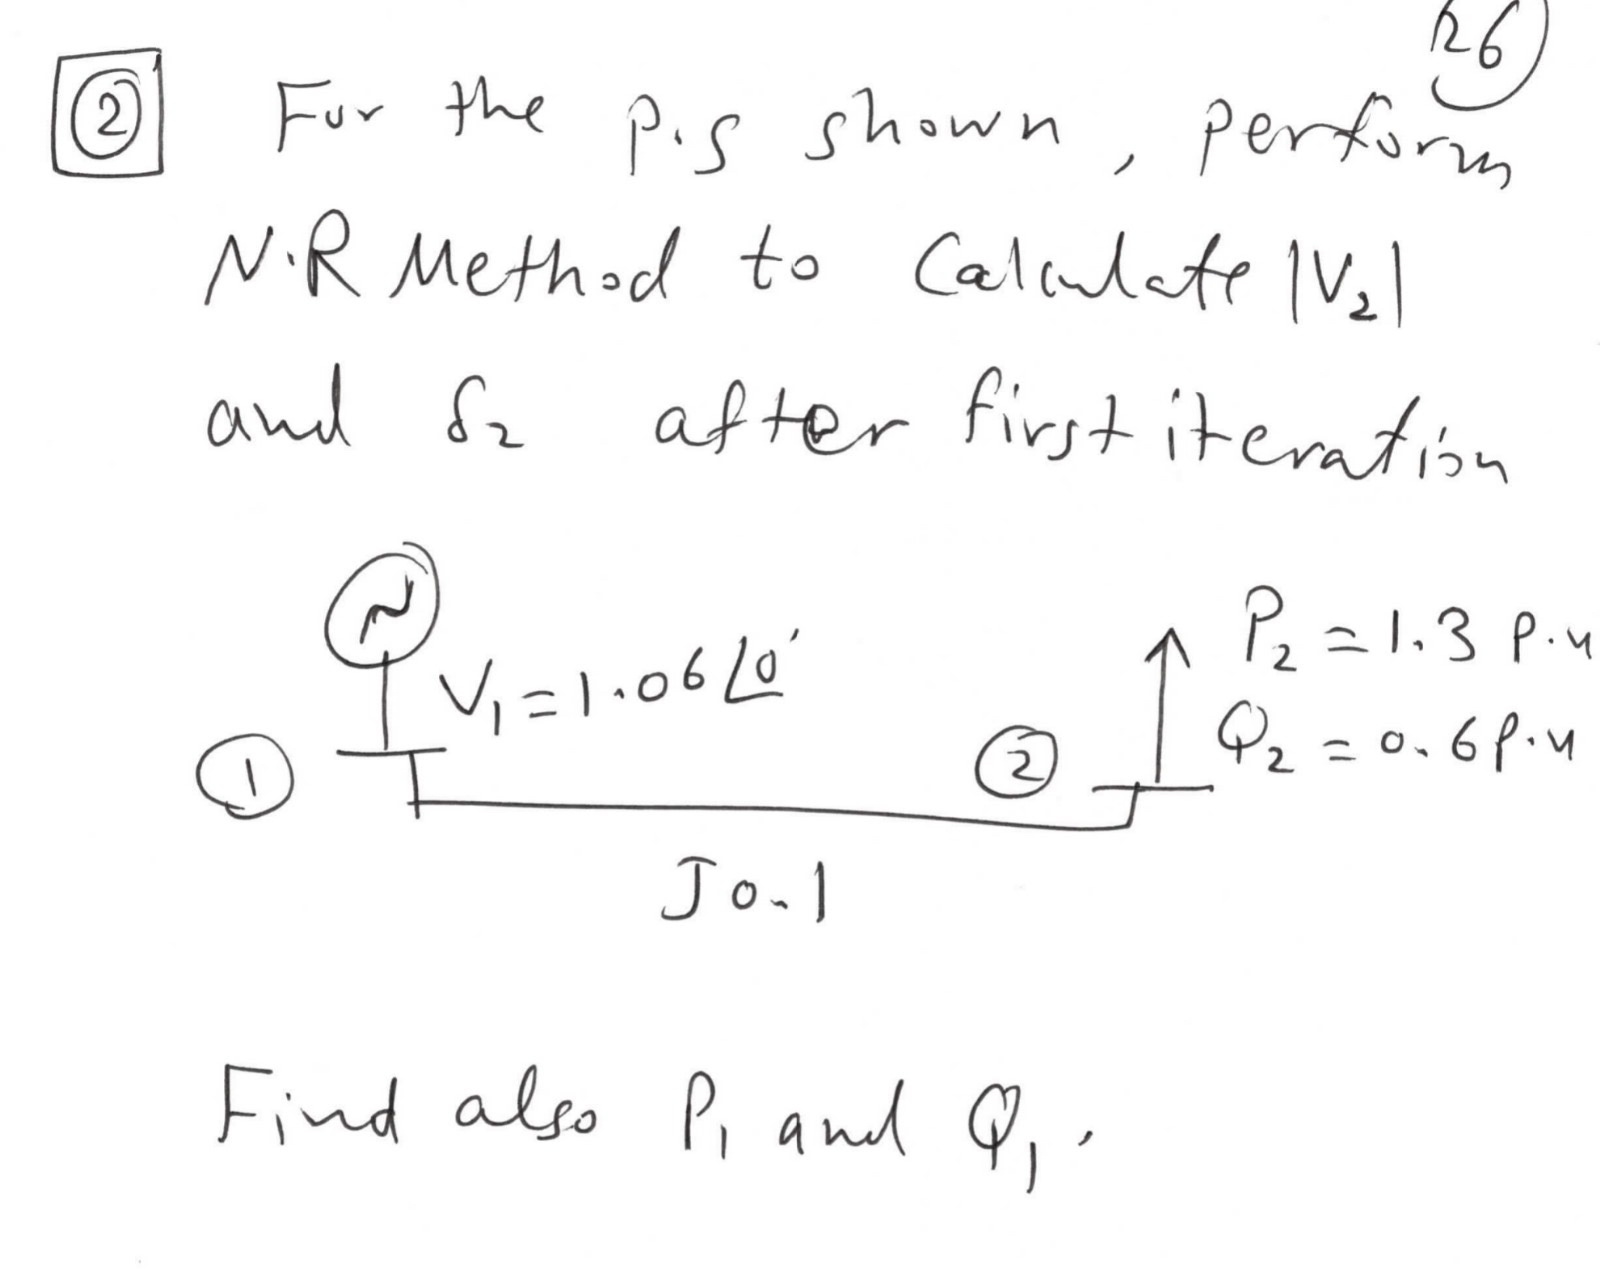 26
2 For the p.s shown, perform
N.R Method to Calculate |V₂|
and δ₂ after first iteration
V₁ = 1.06∠0°
P₂ = 1.3 p.u
Q₂ = 0.6 p.u
1
2
J0.1
Find also P₁ and Q₁.